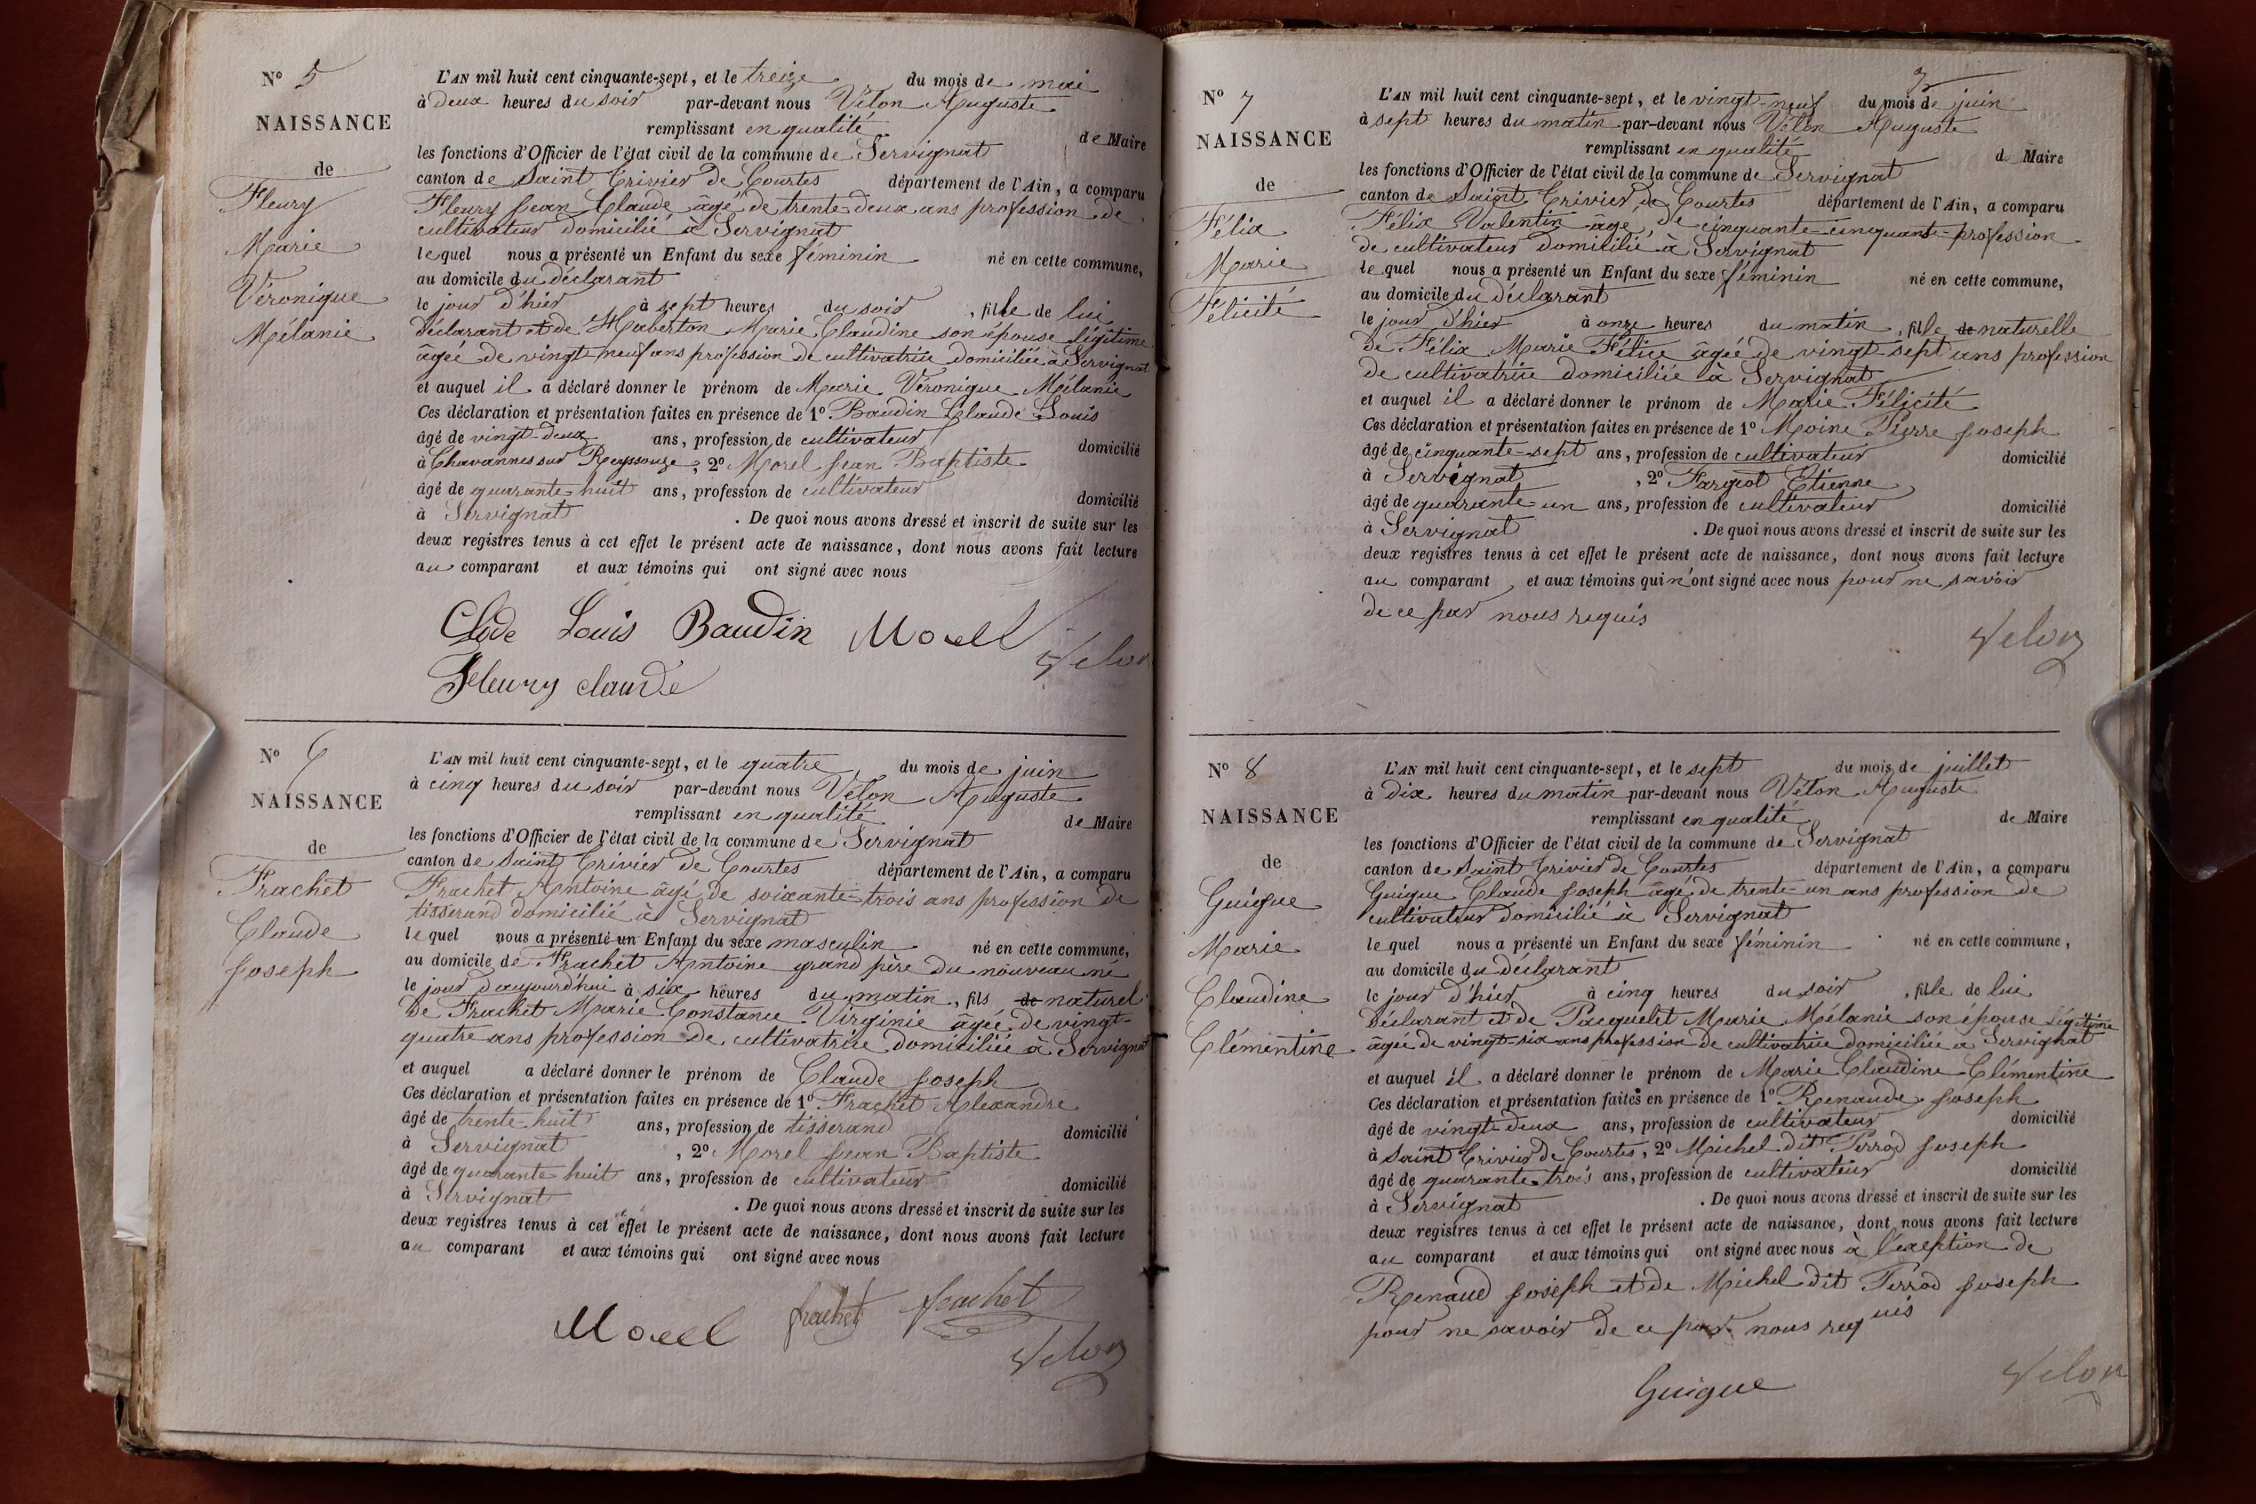 N° 5
NAISSANCE
de
Fleury
Marie
Véronique
Mélanie
L'AN mil huit cent cinquante-sept, et le treize du mois de mai
à deux heures du soir par-devant nous Vélon Auguste
remplissant en qualité de Maire
les fonctions d'Officier de l'état civil de la commune de Servignat
canton de Saint Trivier de Courtes département de l'Ain, a comparu
Fleury Jean Claude âgé de trente-deux ans profession de
cultivateur domicilié à Servignat
lequel nous a présenté un Enfant du sexe féminin né en cette commune,
au domicile du déclarant
le jour d'hier à sept heures du soir, fille de lui
déclarant et de Haberton Marie Claudine son épouse légitime
âgée de vingt neuf ans profession de cultivatrice domiciliée à Servignat
et auquel il a déclaré donner le prénom de Marie Véronique Mélanie
Ces déclaration et présentation faites en présence de 1° Baudin Claude Louis
âgé de vingt-deux ans, profession de cultivateur domicilié
à Chavannes sur Reyssouze, 2° Morel Jean Baptiste
âgé de quarante huit ans, profession de cultivateur domicilié
à Servignat. De quoi nous avons dressé et inscrit de suite sur les
deux registres tenus à cet effet le présent acte de naissance, dont nous avons fait lecture
au comparant et aux témoins qui ont signé avec nous
Clde Louis Baudin Morel
Velon
Fleury claude
N° 6
NAISSANCE
de
Frachet
Claude
Joseph
L'AN mil huit cent cinquante-sept, et le quatre du mois de juin
à cinq heures du soir par-devant nous Vélon Auguste
remplissant en qualité de Maire
les fonctions d'Officier de l'état civil de la commune de Servignat
canton de Saint Trivier de Courtes département de l'Ain, a comparu
Frachet Antoine âgé de soixante-trois ans profession de
tisserand domicilié à Servignat
lequel nous a présenté un Enfant du sexe masculin né en cette commune,
au domicile de Frachet Antoine grand père du nouveau né
le jour d'aujourd'hui à six heures du matin, fils de naturel
de Frachet Marie Constance Virginie âgée de vingt-
quatre ans profession de cultivatrice domiciliée à Servignat
et auquel a déclaré donner le prénom de Claude Joseph
Ces déclaration et présentation faites en présence de 1° Frachet Alexandre
âgé de trente-huit ans, profession de tisserand domicilié
à Servignat, 2° Morel Jean Baptiste
âgé de quarante huit ans, profession de cultivateur domicilié
à Servignat. De quoi nous avons dressé et inscrit de suite sur les
deux registres tenus à cet effet le présent acte de naissance, dont nous avons fait lecture
au comparant et aux témoins qui ont signé avec nous
Morel frachet frachet
Velon
N° 7
NAISSANCE
de
Félix
Marie
Félicité
L'AN mil huit cent cinquante-sept, et le vingt-neuf du mois de juin
à sept heures du matin par-devant nous Vélon Auguste
remplissant en qualité de Maire
les fonctions d'Officier de l'état civil de la commune de Servignat
canton de Saint Trivier de Courtes département de l'Ain, a comparu
Félix Valentin âgé, de cinquante-cinquans-profession
de cultivateur domicilié à Servignat
lequel nous a présenté un Enfant du sexe féminin né en cette commune,
au domicile du déclarant
le jour d'hier à onze heures du matin, fille de naturelle
de Félix Marie Félice âgée de vingt-sept ans profession
de cultivatrice domiciliée à Servignat
et auquel il a déclaré donner le prénom de Marie Félicité
Ces déclaration et présentation faites en présence de 1° Moine Pierre Joseph
âgé de cinquante-sept ans, profession de cultivateur domicilié
à Servignat, 2° Fargeot Etienne
âgé de quarante un ans, profession de cultivateur domicilié
à Servignat. De quoi nous avons dressé et inscrit de suite sur les
deux registres tenus à cet effet le présent acte de naissance, dont nous avons fait lecture
au comparant, et aux témoins qui n'ont signé avec nous pour ne savoir
de ce par nous requis
Velon
N° 8
NAISSANCE
de
Guigue
Marie
Claudine
Clémentine
L'AN mil huit cent cinquante-sept, et le sept du mois de juillet
à dix heures du matin par-devant nous Vélon Auguste
remplissant en qualité de Maire
les fonctions d'Officier de l'état civil de la commune de Servignat
canton de Saint Trivier de Courtes département de l'Ain, a comparu
Guigue Claude Joseph âgé de trente-un ans profession de
cultivateur domicilié à Servignat
lequel nous a présenté un Enfant du sexe féminin né en cette commune,
au domicile du déclarant
le jour d'hier à cinq heures du soir, fille de lui
déclarant et de Pacquelet Marie Mélanie son épouse légitime
âgée de vingt-six ans profession de cultivatrice domiciliée à Servignat
et auquel il a déclaré donner le prénom de Marie Claudine Clémentine
Ces déclaration et présentation faites en présence de 1° Renaude Joseph
âgé de vingt-deux ans, profession de cultivateur domicilié
à Saint Trivier de Courtes, 2° Michel dit Perrod Joseph
âgé de quarante-trois ans, profession de cultivateur domicilié
à Servignat. De quoi nous avons dressé et inscrit de suite sur les
deux registres tenus à cet effet le présent acte de naissance, dont nous avons fait lecture
au comparant et aux témoins qui ont signé avec nous à l'exeption de
Renaud Joseph et de Michel dit Perrod Joseph
pour ne savoir de ce par nous requis
Velon
Guigue